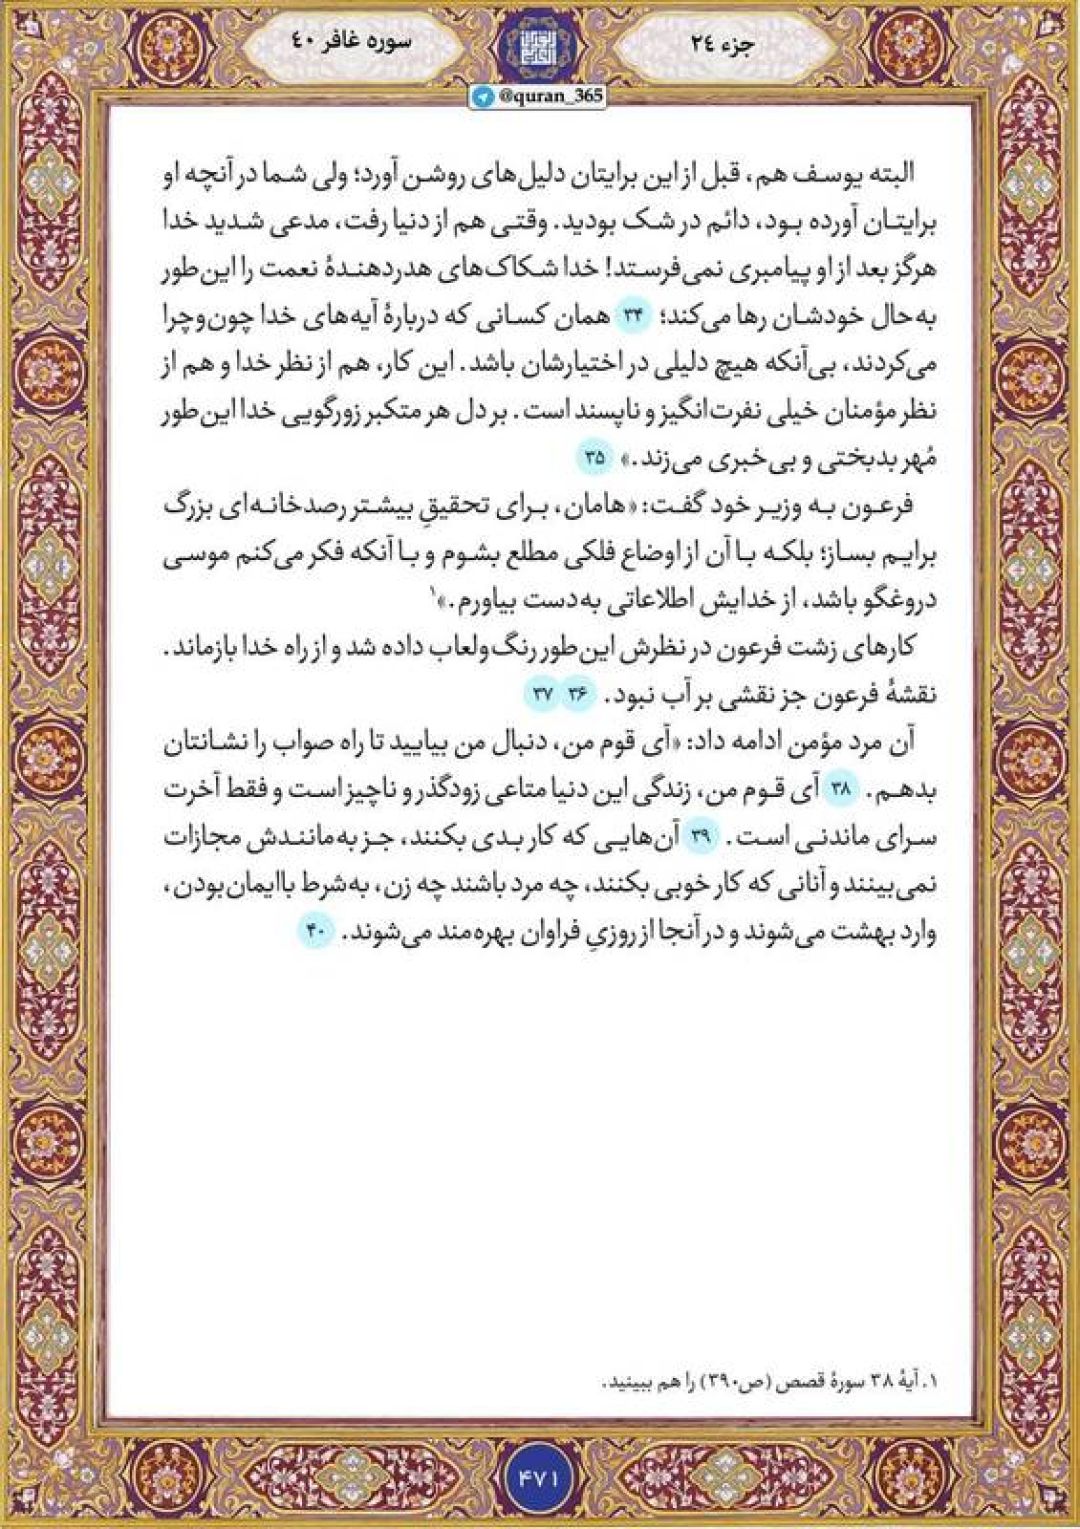 جزء ۲٤
سوره غافر ٤٠
@quran_365
البته یوسف هم، قبل از این برایتان دلیل‌های روشن آورد؛ ولی شما در آنچه او
برایتان آورده بود، دائم در شک بودید. وقتی هم از دنیا رفت، مدعی شدید خدا
هرگز بعد از او پیامبری نمی‌فرستد! خدا شکاک‌های هدردهندهٔ نعمت را این‌طور
به‌حال خودشان رها می‌کند؛ ۳۴ همان کسانی که دربارهٔ آیه‌های خدا چون‌وچرا
می‌کردند، بی‌آنکه هیچ دلیلی در اختیارشان باشد. این کار، هم از نظر خدا و هم از
نظر مؤمنان خیلی نفرت‌انگیز و ناپسند است. بر دل هر متکبر زورگویی خدا این‌طور
مُهر بدبختی و بی‌خبری می‌زند.» ۳۵
فرعون به وزیر خود گفت: «هامان، برای تحقیقِ بیشتر رصدخانه‌ای بزرگ
برایم بساز؛ بلکه با آن از اوضاع فلکی مطلع بشوم و با آنکه فکر می‌کنم موسی
دروغگو باشد، از خدایش اطلاعاتی به‌دست بیاورم.»۱
کارهای زشت فرعون در نظرش این‌طور رنگ‌ولعاب داده شد و از راه خدا بازماند.
نقشهٔ فرعون جز نقشی بر آب نبود. ۳۶ ۳۷
آن مرد مؤمن ادامه داد: «آی قوم من، دنبال من بیایید تا راه صواب را نشانتان
بدهم. ۳۸ آی قوم من، زندگی این دنیا متاعی زودگذر و ناچیز است و فقط آخرت
سرای ماندنی است. ۳۹ آن‌هایی که کار بدی بکنند، جز به‌مانندش مجازات
نمی‌بینند و آنانی که کار خوبی بکنند، چه مرد باشند چه زن، به‌شرط باایمان‌بودن،
وارد بهشت می‌شوند و در آنجا از روزیِ فراوان بهره‌مند می‌شوند. ۴۰
۱. آیهٔ ۳۸ سورهٔ قصص (ص۳۹۰) را هم ببینید.
۴۷۱